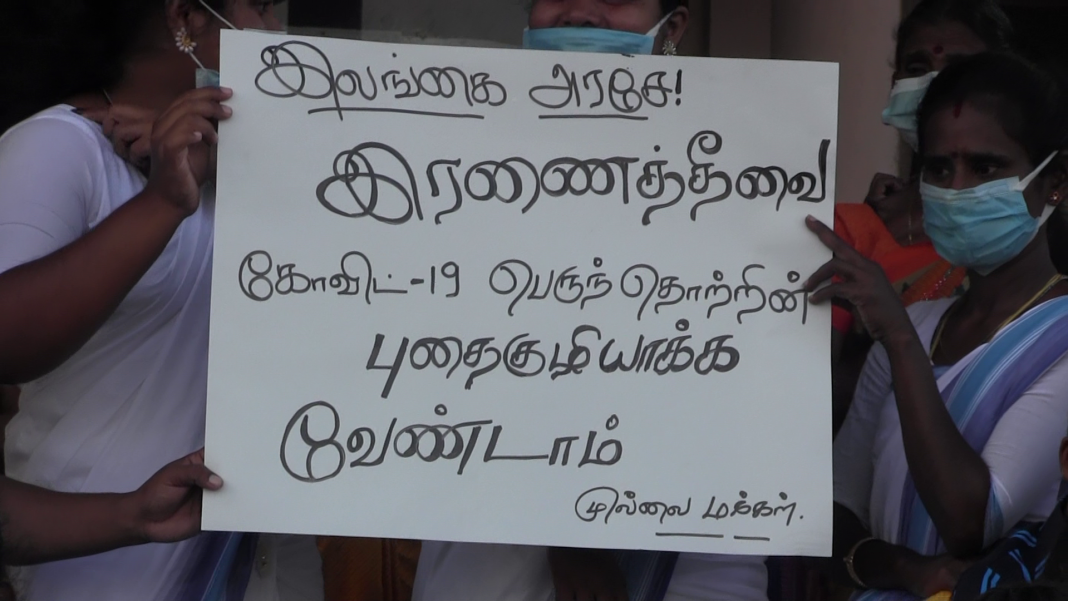 இலங்கை அரசே!
இரணைத்தீவை
கோவிட்-19 பெருந்தொற்றின்
புதைகுழியாக்க
வேண்டாம்
முல்லை மக்கள்.